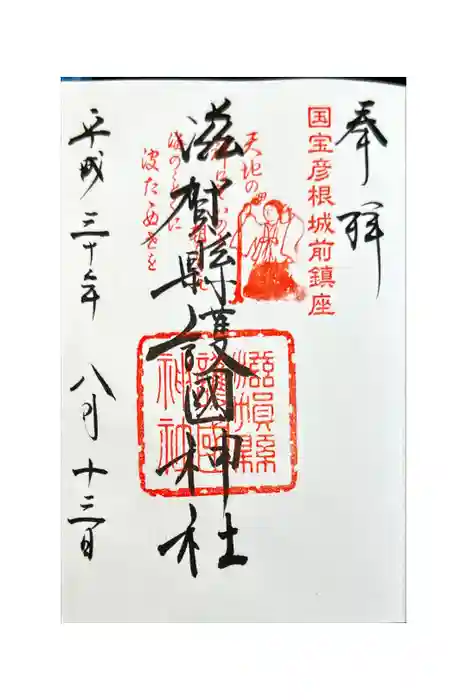 奉拝
国宝彦根城前鎮座
天地の
海のごとくに
波たゝぬ世を
滋賀縣護國神社
滋賀縣
護國
神社
平成三十年 八月十三日